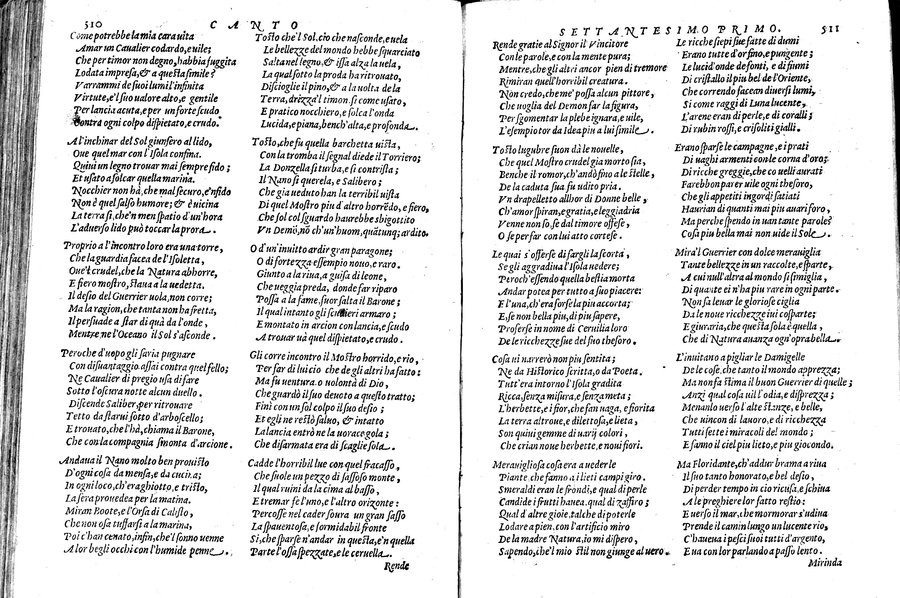 510 CANTO
Come potrebbe la mia cara uita
Amar un Caualier codardo, e uile;
Che per timor non degno, habbia fuggita
Lodata impresa, & a questa simile?
Varrammi de suoi lumi l'infinita
Virtute, e'l suo ualore alto, e gentile
Per lancia acuta, e per un forte scudo
Contra ogni colpo dispietato, e crudo.
A l'inchinar del Sol giunsero al lido,
Oue quel mar con l'Isola confina.
Quini un legno trouar mai sempre fido;
Et usato a solcar quella marina.
Nocchier non hà, che mal securo, e'nfido
Non è quel salso humore; & è uicina
La terra sì, che'n men spatio d'un'hora
L'aduerso lido può toccar la prora.
Proprio a l'incontro loro era una torre,
Che la guardia facea de l'Isoletta,
Oue'l crudel, che la Natura abhorre,
E fiero mostro, staua a la uedetta.
Il desio del Guerrier uola, non corre;
Ma la ragion, che tanta non ha fretta,
Il persuade a star di quà da l'onde,
Mentre ne l'Oceano il Sol s'asconde.
Peroche d'uopo gli saria pugnare
Con disuantaggio assai contra quel fello;
Ne Caualier di pregio usa di fare
Sotto l'oscura notte alcun duello.
Discende Saliber, per ritrouare
Tetto da starui sotto d'arboscello;
E trouato, che l'hà, chiama il Barone,
Che con la compagnia smonta d'arcione.
Andaua il Nano molto ben prouisto
D'ogni cosa da mensa, e da cucina;
In ogni loco, ch'era ghiotto, e tristo,
La sera prouedea per la matina.
Miran Boote, e l'Orsa di Calisto,
Che non osa tuffarsi a la marina,
Poi c'han cenato, infin, che'l sonno uenne
A lor begli occhi con l'humide penne.
Tosto che'l Sol, ciò che nasconde, e cuopre
Le bellezze del mondo hebbe squarciato
Salta nel legno, & issa alza la uela,
La qual sotto la proda ha ritrouato,
Discioglie il pino, & a la uolta de la
Terra, drizza'l timon si come usato,
E pratico nocchiero, e solca l'onda
Lucida, e piana, bench'alta, e profonda.
Tosto, che fu quella barchetta uista,
Con la tromba il segnal diede il Torriero;
La Donzella si turba, e si contrista;
Il Nano si querela, e Salibero;
Che gia ueduto han la terribil uista
Di quel Mostro piu d'altro horrēdo, e fiero,
Che sol col sguardo haurebbe sbigottito
Vn Demō, nō ch'un'huom, quātunq; ardito.
O d'un'inuitto ardir gran paragone;
O di fortezza essempio nouo, e raro.
Giunto a la riua, a guisa di leone,
Che ueggia preda, donde far riparo
Possa a la fame, fuor salta il Barone;
Il qual intanto gli scudieri armaro;
E montato in arcion con lancia, e scudo
A trouar uà quel dispietato, e crudo.
Gli corre incontro il Mostro horrido, e rio,
Per far di lui cio che de gli altri ha fatto:
Ma fu uentura, o uolontà di Dio,
Che guardò il suo deuoto a questo tratto;
Finì con un sol colpo il suo desio;
Et egli ne restò saluo, & intatto
La lancia entrò ne la uorace gola;
Che disarmata era di scaglie sola.
Cadde l'horribil lue con quel fracasso,
Che suole un pezzo di sassoso monte,
Il qual ruini da la cima al basso,
E tremar fe l'uno, e l'altro orizonte:
Percosse nel cader soura un gran sasso
La spauentosa, e formidabil fronte
Sì, che sparse n'andar in questa, e'n quella
Parte l'ossa spezzate, e le ceruella.
Rende
SETTANTESIMO PRIMO. 511
Rende gratie al Signor il Vincitore
Con le parole, e con la mente pura;
Mentre, che gli altri ancor pien di tremore
Rimiran quell'horribil creatura.
Non credo, che me' possa alcun pittore,
Che uoglia del Demon far la figura,
Per sgomentar la plebe ignara, e uile,
L'esempio tor da Idea piu a lui simile.
Tosto lugubre suon dà le nouelle,
Che quel Mostro crudel gia morto sia,
Benche il romor, ch'andò sino a le stelle,
De la caduta sua fu udito pria.
Vn drapelletto allhor di Donne belle,
Ch'amor spiran, e gratia, e leggiadria
Venne non so se dal timore offese,
O se per far con lui atto cortese.
Le quai s'offerse di fargli la scorta,
Se gli aggradiua l'Isola uedere;
Peroch'essendo quella bestia morta
Andar potea per tutto a suo piacere:
E l'una, ch'era forse la piu accorta;
E, se non bella piu, di piu sapere,
Proferse in nome di Ceruilia loro
De le ricchezze sue del suo thesoro.
Cosa ui narrerò non piu sentita;
Ne da Historico scritta, o da Poeta.
Tutt'era intorno l'Isola gradita
Ricca, senza misura, e senza meta;
L'herbette, e i fior, che fan uaga, e fiorita
La terra altroue, e dilettosa, e lieta,
Son quini gemme di uarij colori,
Che crian noue herbette, e noui fiori.
Merauigliosa cosa era a uederle
Piante, che fanno a i lieti campi giro.
Smeraldi eran le frondi; e qual di perle
Candide i frutti hauea, qual di zaffiro;
Qual d'altre gioie, talche di poterle
Lodare a pien, con l'artificio miro
De la madre Natura, io mi dispero,
Sapendo, che'l mio stil non giunge al uero.
Le ricche siepi sue fatte di dumi
Erano tutte d'or fino, e pungente;
Le lucid'onde de fonti, e di fiumi
Di cristallo il piu bel de l'Oriente,
Che correndo facean diuersi lumi,
Si come raggi di Luna lucente,
L'arene eran di perle, e di coralli;
Di rubin rossi, e crisoliti gialli.
Erano sparse le campagne, e i prati
Di uaghi armenti con le corna d'oro;
Di ricche greggie, che co uelli aurati
Farebbon parer uile ogni thesoro,
Che gli appetiti ingordi satiati
Haurian di quanti mai piu auari foro,
Ma perche spendo in uan tante parole?
Cosa piu bella mai non uide il Sole.
Mira'l Guerrier con dolce merauiglia
Tante bellezze in un raccolte, e sparte,
A cui null'altra al mondo si simiglia,
Di quante ei n'ha piu rare in ogni parte.
Non sa leuar le gloriose ciglia
Da le noue ricchezze iui cosparte;
E giuraria, che questa sola è quella,
Che di Natura auanza ogn'opra bella.
L'inuitano a pigliar le Damigelle
De le cose, che tanto il mondo apprezza;
Ma non fa stima il buon Guerrier di quelle;
Anzi qual cosa uil l'odia, e disprezza;
Menanlo uerso l'alte stanze, e belle,
Che uincon di lauoro, e di ricchezza
Tutti sette i miracoli del mondo;
E fanno il ciel piu lieto, e piu giocondo.
Ma Floridante, ch'addur brama a riua
Il suo tanto honorato, e bel desio,
Di perder tempo in cio ricusa, e schiua
A le preghiere lor fatto restio:
E uerso il mar, che mormorar s'udiua
Prende il camin lungo un lucente rio,
C'hauea i pesci suoi tutti d'argento,
E ua con lor parlando a passo lento.
Mirinda